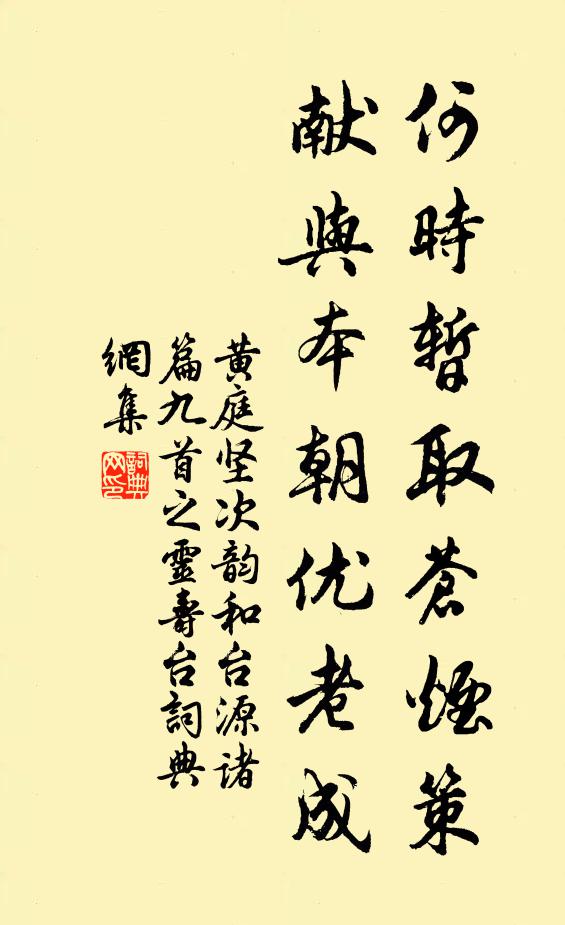 何時暫取蒼煙策
献與本朝优老成
黄庭坚次韵和台源诸
篇九首之靈壽台詞典
網集
詞典網印